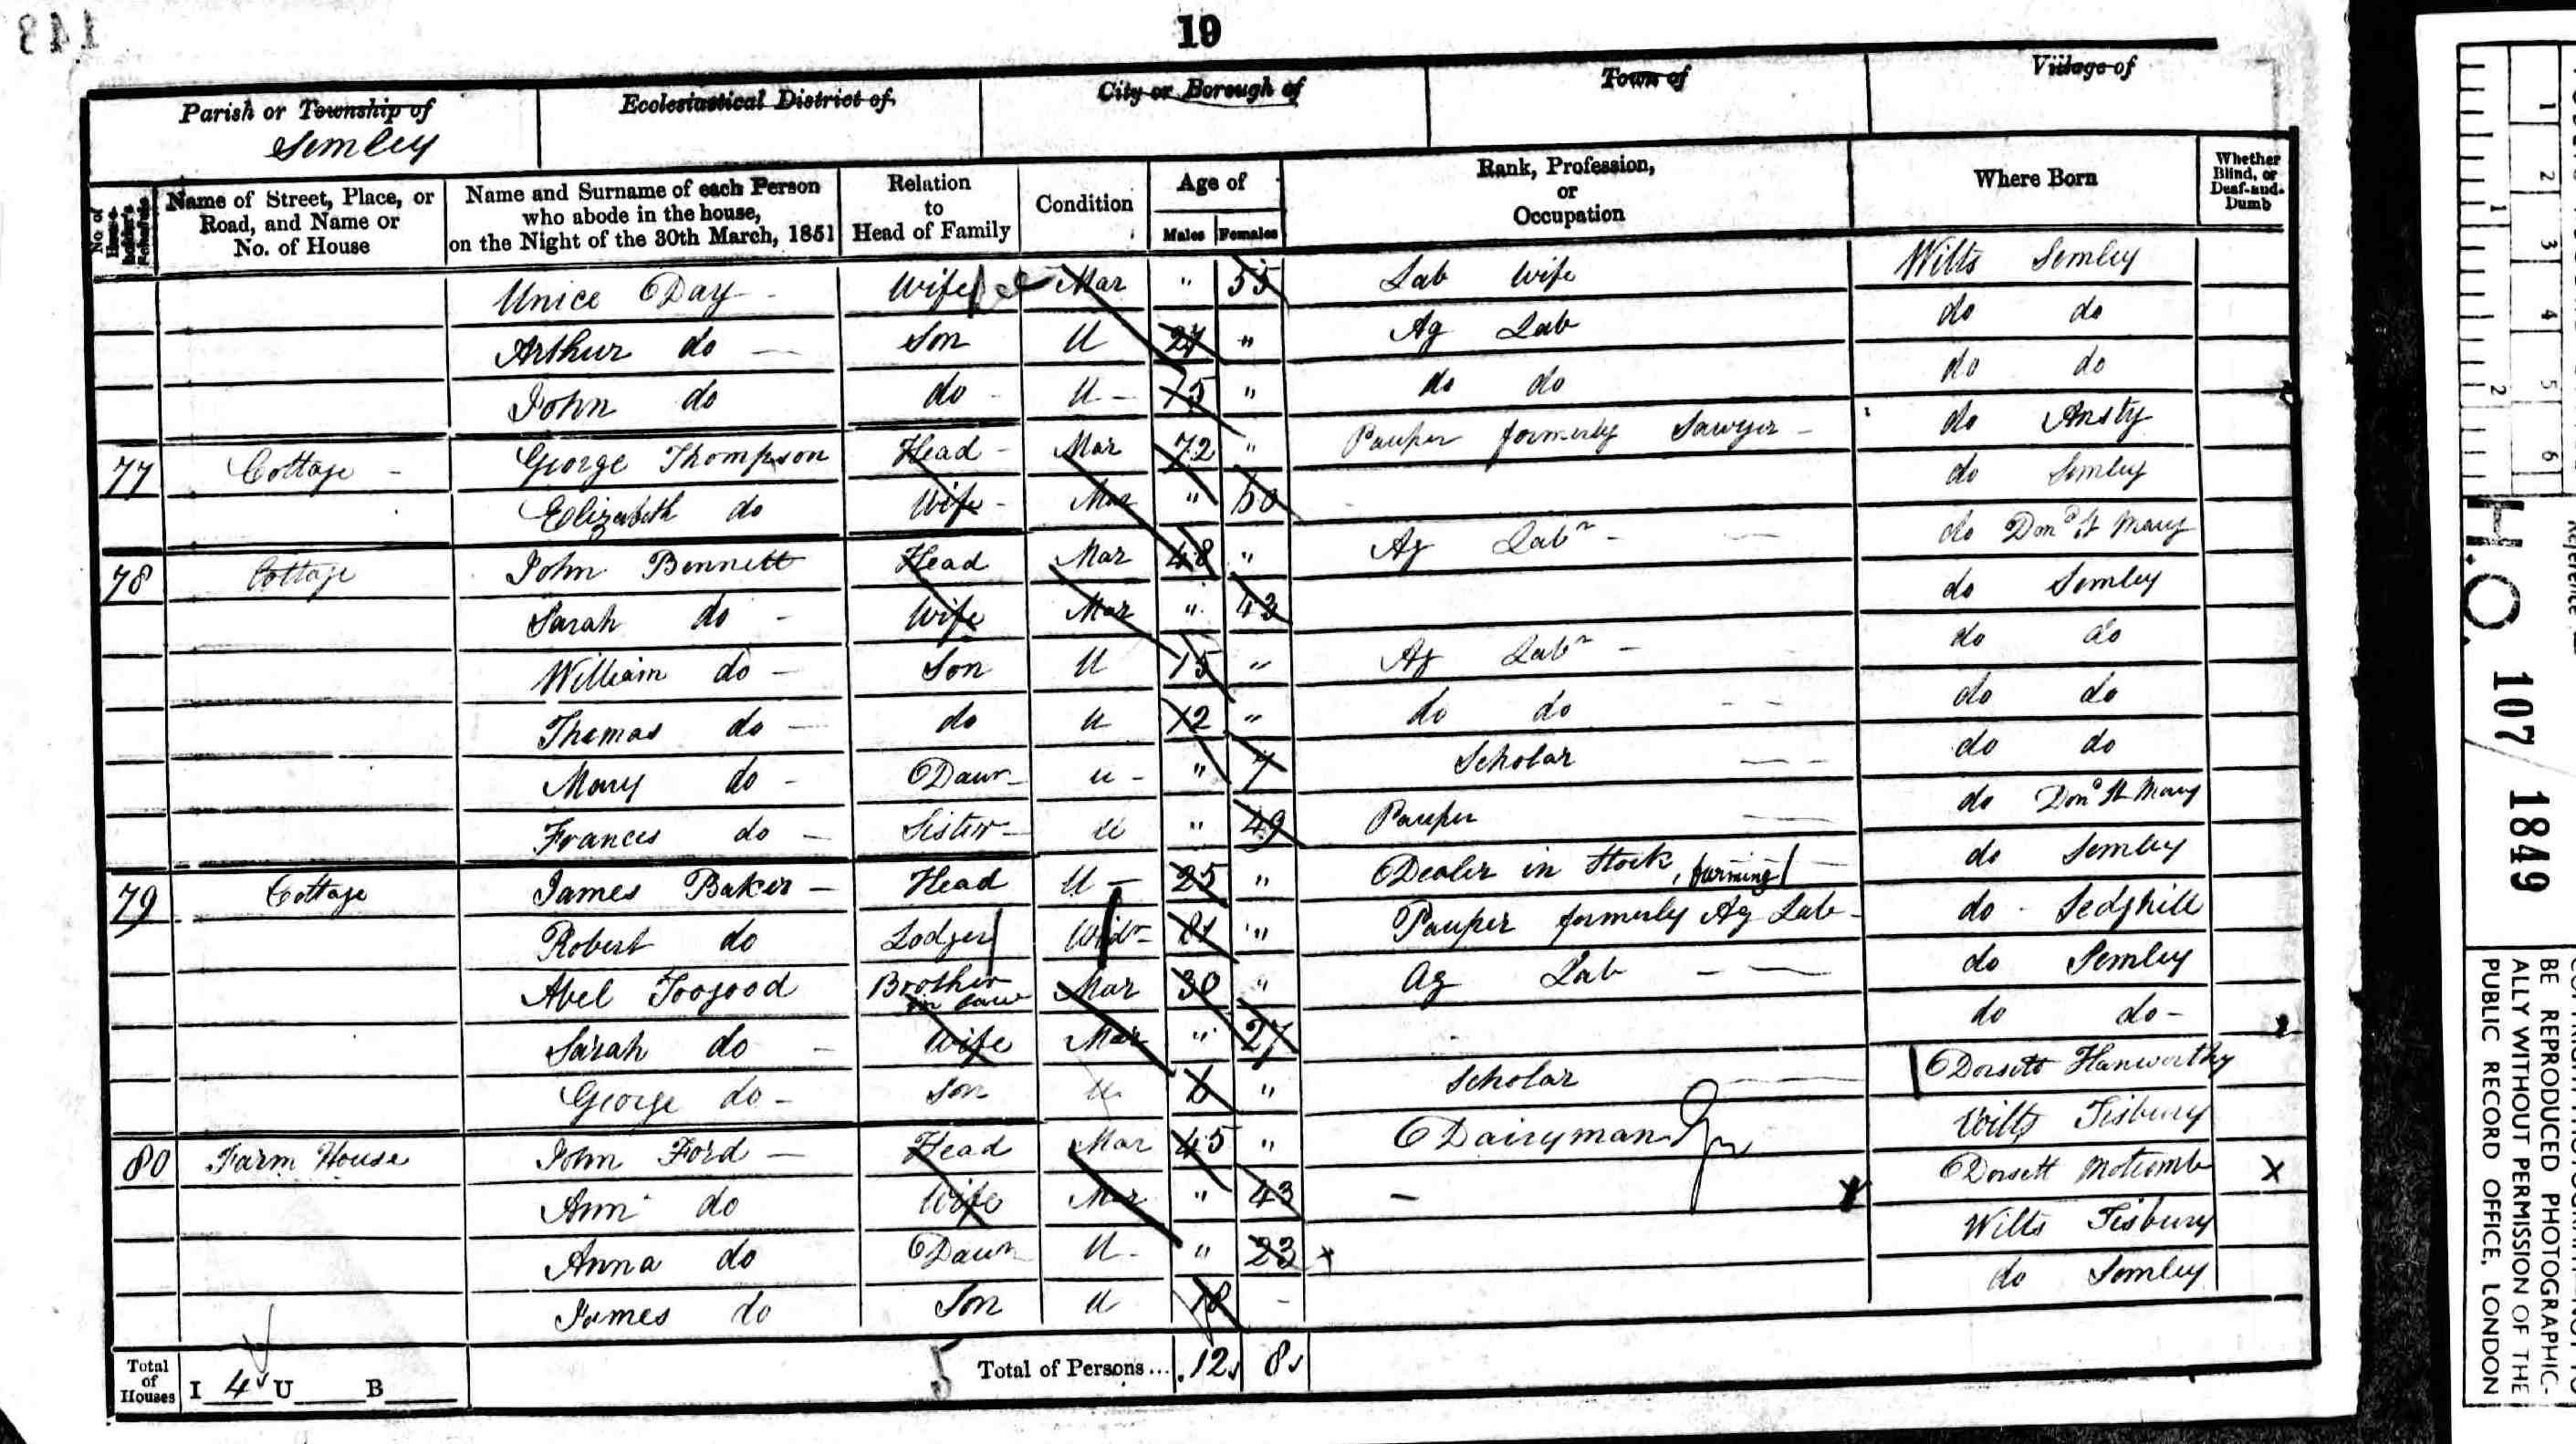 143
19
Parish or Township of
Semley
Ecclesiastical District of
City or Borough of
Town of
Village of
No. of House-holder's Schedule
Name of Street, Place, or Road, and Name or No. of House
Name and Surname of each Person who abode in the house, on the Night of the 30th March, 1851
Relation to Head of Family
Condition
Age of
Males Females
Rank, Profession, or Occupation
Where Born
Whether Blind, or Deaf-and-Dumb
Unice Day - Wife Mar " 55 Lab Wife Wilts Semley
Arthur do - Son U 27 " Ag Lab do do
John do do - U - 15 " do do do do
77 Cottage - George Thompson Head - Mar 72 " Pauper formerly Sawyer - do Ansty
Elizabeth do Wife - Mar " 50 do Semley
78 Cottage John Bennett Head Mar 48 " Ag Labr - do Don St Mary
Sarah do - Wife Mar " 43 do Semley
William do - Son U 15 " Ag Labr - do do
Thomas do - do U 12 " do do - - do do
Mary do - Daur - U - " 7 Scholar - do do
Frances do - Sister - U " 49 Pauper - do Don St Mary
79 Cottage James Baker - Head U - 25 " Dealer in Stock, farming - do Semley
Robert do Lodger Widr - 81 " Pauper formerly Ag Lab - do - Sedghill
Abel Toogood Brother in law Mar 30 " Ag Lab - do Semley
Sarah do - Wife Mar " 27 do do -
George do - Son U 6 " Scholar - Dorsett Hanworthy
80 Farm House John Ford - Head Mar 45 " Dairyman Wilts Tisbury
Ann do Wife Mar " 43 - Dorsett Motcomb X
Anna do Daur U - " 23 x Wilts Tisbury
James do Son U 18 - do Semley
Total of Houses I 4 U B
5 Total of Persons... 12 8
1
2
3
4
5
6
1
2
H.O. 107/1849
BE REPRODUCED PHOTOGRAPHIC-
ALLY WITHOUT PERMISSION OF THE
PUBLIC RECORD OFFICE, LONDON